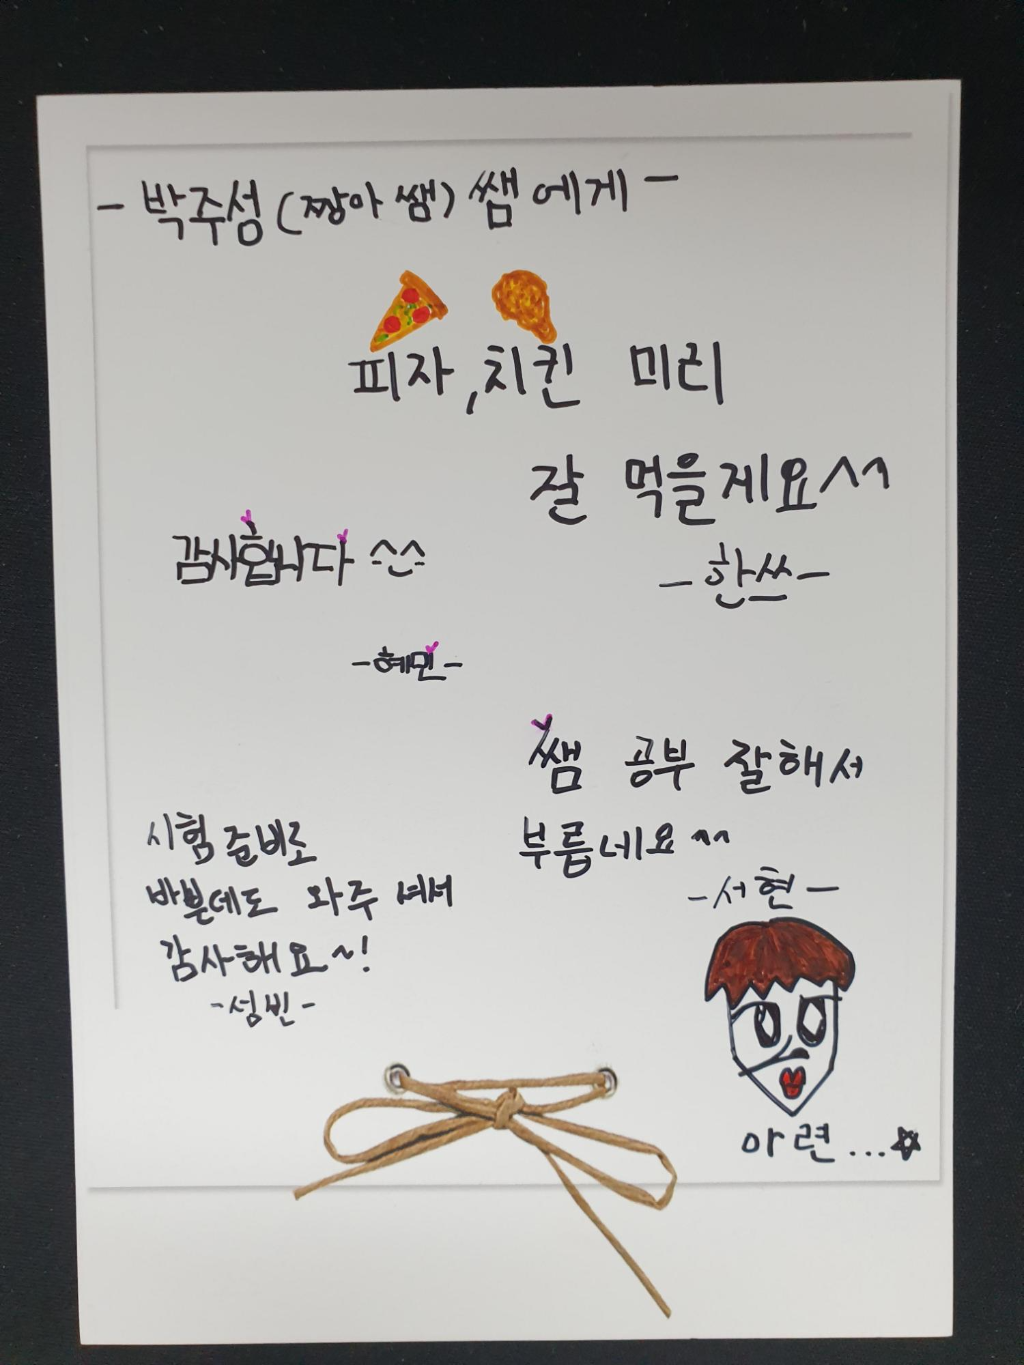 - 박주성 (짱아 쌤) 쌤에게 -
피자, 치킨 미리
잘 먹을게요^^
- 한쓰 -
감사합니다 ^-^
- 혜민 -
쌤 공부 잘해서
부릅네요 ^^
- 서현 -
시험 준비로
바쁜데도 와주셔서
감사해요~!
- 성빈 -
아련...☆